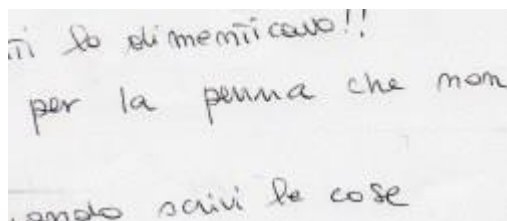 tti lo dimenticavo!!
per la penna che non
uando scrivi le cose